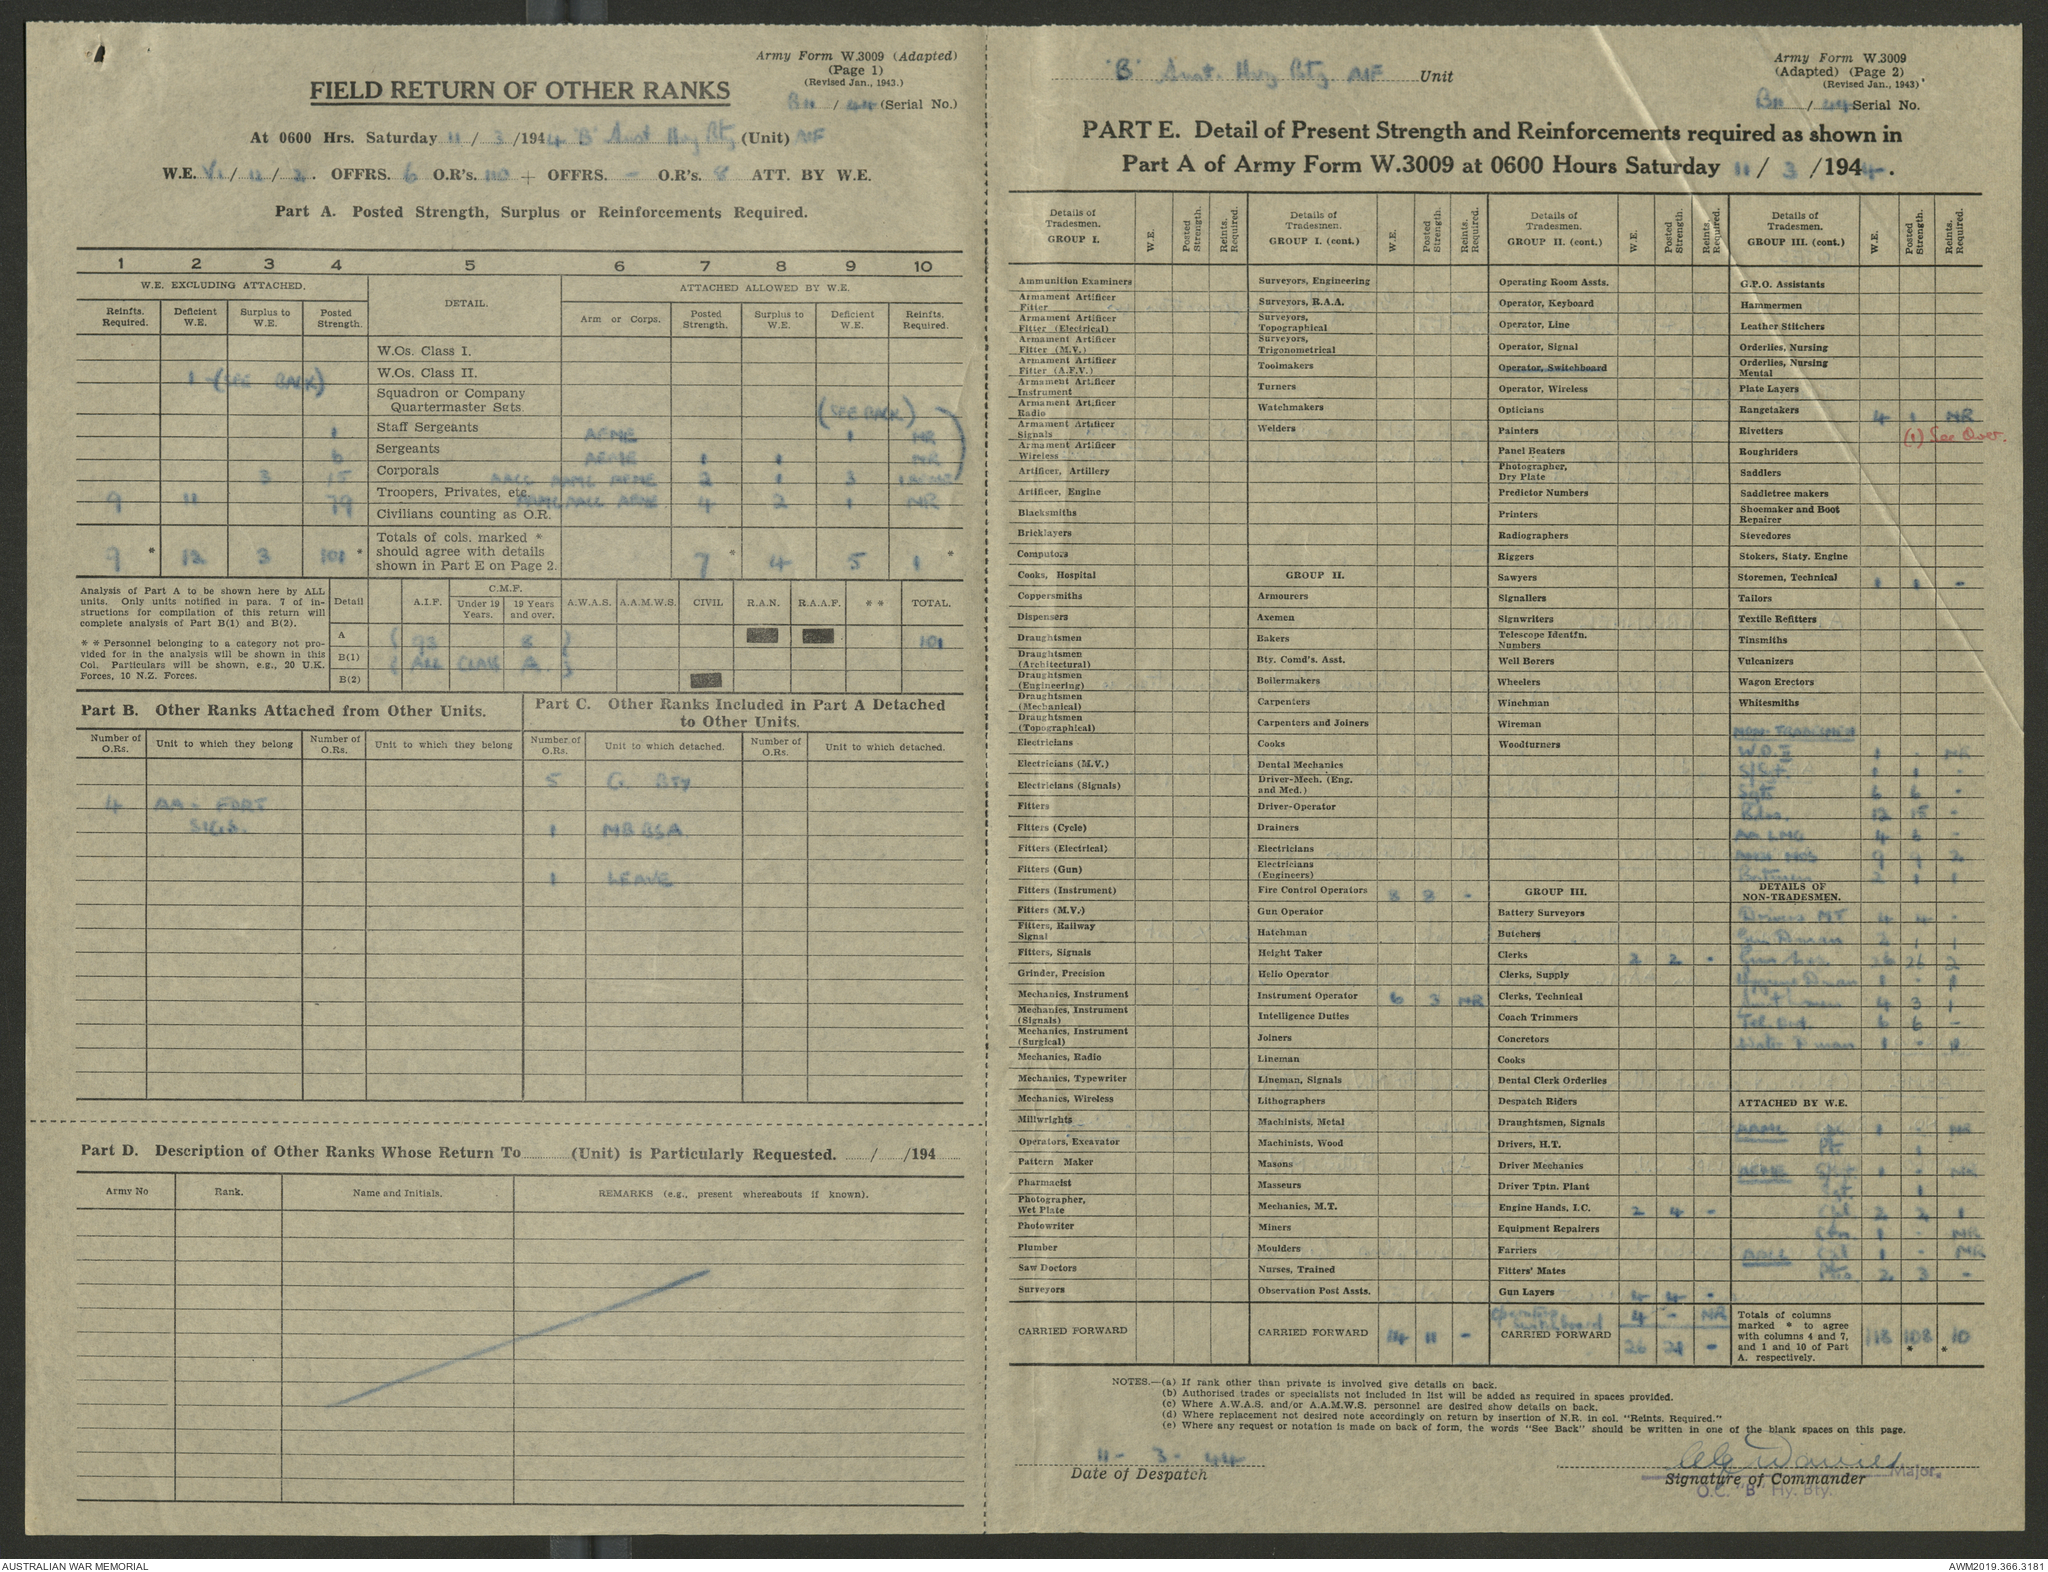 Army Form W.3009 (Adapted)
(Page 1)
(Revised Jan., 1943.)
FIELD RETURN OF OTHER RANKS
/ 44 (Serial No.)
At 0600 Hrs. Saturday 11 / 3 /1944 'B' Aust Hvy Bty (Unit) AIF
W.E. / 12 / 2. OFFRS. 6 O.R's. 110 + OFFRS. - O.R's. 8 ATT. BY W.E.
Part A. Posted Strength, Surplus or Reinforcements Required.
1 2 3 4 5 6 7 8 9 10
W.E. EXCLUDING ATTACHED. DETAIL. ATTACHED ALLOWED BY W.E.
Reinfts. Required. Deficient W.E. Surplus to W.E. Posted Strength. Arm or Corps. Posted Strength. Surplus to W.E. Deficient W.E. Reinfts. Required.
W.Os. Class I.
1 (SEE BACK) W.Os. Class II.
Squadron or Company Quartermaster Sgts. (SEE BACK)
1 Staff Sergeants AEME 1 NR
6 Sergeants AEME 1 1 NR
3 15 Corporals AACC AAMC AEME 2 1 3 1 AEME
9 11 79 Troopers, Privates, etc. AAMC AACC AEME 4 2 1 NR
Civilians counting as O.R.
9 * 12 3 101 * Totals of cols. marked * should agree with details shown in Part E on Page 2. 7 * 4 5 1 *
Analysis of Part A to be shown here by ALL
units. Only units notified in para. 7 of in-
structions for compilation of this return will
complete analysis of Part B(1) and B(2).
* * Personnel belonging to a category not pro-
vided for in the analysis will be shown in this
Col. Particulars will be shown, e.g., 20 U.K.
Forces, 10 N.Z. Forces.
Detail A.I.F. C.M.F. Under 19 Years. 19 Years and over. A.W.A.S. A.A.M.W.S. CIVIL R.A.N. R.A.A.F. * * TOTAL.
A 93 8 101
B(1) ALL CLASS A.
B(2)
Part B. Other Ranks Attached from Other Units.
Number of O.Rs. Unit to which they belong Number of O.Rs. Unit to which they belong
4 AA - FORT
SIGS.
Part C. Other Ranks Included in Part A Detached
to Other Units.
Number of O.Rs. Unit to which detached. Number of O.Rs. Unit to which detached.
5 G. Bty
1 MBBSA
1 LEAVE
Part D. Description of Other Ranks Whose Return To (Unit) is Particularly Requested. / /194
Army No Rank. Name and Initials. REMARKS (e.g., present whereabouts if known).
'B' Aust. Hvy Bty. AIF Unit
Army Form W.3009
(Adapted) (Page 2)
(Revised Jan., 1943)
/ 44 Serial No.
PART E. Detail of Present Strength and Reinforcements required as shown in
Part A of Army Form W.3009 at 0600 Hours Saturday 11 / 3 /1944.
Details of Tradesmen. GROUP I. W.E. Posted Strength. Reints. Required.
Ammunition Examiners
Armament Artificer Fitter
Armament Artificer Fitter (Electrical)
Armament Artificer Fitter (M.V.)
Armament Artificer Fitter (A.F.V.)
Armament Artificer Instrument
Armament Artificer Radio
Armament Artificer Signals
Armament Artificer Wireless
Artificer, Artillery
Artificer, Engine
Blacksmiths
Bricklayers
Computors
Cooks, Hospital
Coppersmiths
Dispensers
Draughtsmen
Draughtsmen (Architectural)
Draughtsmen (Engineering)
Draughtsmen (Mechanical)
Draughtsmen (Topographical)
Electricians
Electricians (M.V.)
Electricians (Signals)
Fitters
Fitters (Cycle)
Fitters (Electrical)
Fitters (Gun)
Fitters (Instrument)
Fitters (M.V.)
Fitters, Railway Signal
Fitters, Signals
Grinder, Precision
Mechanics, Instrument
Mechanics, Instrument (Signals)
Mechanics, Instrument (Surgical)
Mechanics, Radio
Mechanics, Typewriter
Mechanics, Wireless
Millwrights
Operators, Excavator
Pattern Maker
Pharmacist
Photographer, Wet Plate
Photowriter
Plumber
Saw Doctors
Surveyors
CARRIED FORWARD
Details of Tradesmen. GROUP I. (cont.) W.E. Posted Strength. Reints. Required.
Surveyors, Engineering
Surveyors, R.A.A.
Surveyors, Topographical
Surveyors, Trigonometrical
Toolmakers
Turners
Watchmakers
Welders
GROUP II.
Armourers
Axemen
Bakers
Bty. Comd's. Asst.
Boilermakers
Carpenters
Carpenters and Joiners
Cooks
Dental Mechanics
Driver-Mech. (Eng. and Med.)
Driver-Operator
Drainers
Electricians
Electricians (Engineers)
Fire Control Operators 8 8 -
Gun Operator
Hatchman
Height Taker
Hello Operator
Instrument Operator 6 3 NR
Intelligence Duties
Joiners
Lineman
Lineman, Signals
Lithographers
Machinists, Metal
Machinists, Wood
Masons
Masseurs
Mechanics, M.T.
Miners
Moulders
Nurses, Trained
Observation Post Assts.
CARRIED FORWARD 14 11 -
Details of Tradesmen. GROUP II. (cont.) W.E. Posted Strength. Reints. Required.
Operating Room Assts.
Operator, Keyboard
Operator, Line
Operator, Signal
Operator, Switchboard
Operator, Wireless
Opticians
Painters
Panel Beaters
Photographer, Dry Plate
Predictor Numbers
Printers
Radiographers
Riggers
Sawyers
Signallers
Signwriters
Telescope Identfn. Numbers
Well Borers
Wheelers
Winchman
Wireman
Woodturners
GROUP III.
Battery Surveyors
Butchers
Clerks 2 2 -
Clerks, Supply
Clerks, Technical
Coach Trimmers
Concretors
Cooks
Dental Clerk Orderlies
Despatch Riders
Draughtsmen, Signals
Drivers, H.T.
Driver Mechanics
Driver Tptn. Plant
Engine Hands, I.C. 2 4 -
Equipment Repairers
Farriers
Fitters' Mates
Gun Layers 4 4 -
Operators Switchboard 4 - NR
CARRIED FORWARD 26 21 -
Details of Tradesmen. GROUP III. (cont.) W.E. Posted Strength. Reints. Required.
G.P.O. Assistants
Hammermen
Leather Stitchers
Orderlies, Nursing
Orderlies, Nursing Mental
Plate Layers
Rangetakers 4 1 NR
Rivetters (1) See Over.
Roughriders
Saddlers
Saddletree makers
Shoemaker and Boot Repairer
Stevedores
Stokers, Staty. Engine
Storemen, Technical 1 1 -
Tailors
Textile Refitters
Tinsmiths
Vulcanizers
Wagon Erectors
Whitesmiths
NON-TRADESMEN
W.O.II 1 - NR
S/Sgt. 1 1 -
Sgts 6 6 -
Bdrs. 12 15 -
AA LMG 4 6 -
Ammn Nos 9 9 2
Batmen 2 1 1
DETAILS OF NON-TRADESMEN.
Drivers MT 4 4 -
2 1 1
Gun Nos 26 26 2
Hygiene D. man 1 - 1
4 3 1
6 6 -
Water D man 1 - 1
ATTACHED BY W.E.
AAMC Cpl 1 - NR
Pte. 1
AEME S/Sgt 1 - NR
Sgt. 1
Cpl 2 2 1
Cfn. 1 - NR
AACC Cpl 1 - NR
Ptes 2 3 -
Totals of columns marked * to agree with columns 4 and 7, and 1 and 10 of Part A. respectively. 118 108 * 10 *
NOTES.—(a) If rank other than private is involved give details on back.
(b) Authorised trades or specialists not included in list will be added as required in spaces provided.
(c) Where A.W.A.S. and/or A.A.M.W.S. personnel are desired show details on back.
(d) Where replacement not desired note accordingly on return by insertion of N.R. in col. "Reints. Required."
(e) Where any request or notation is made on back of form, the words "See Back" should be written in one of the blank spaces on this page.
11 - 3 - 44
Date of Despatch
Davies Major.
Signature of Commander
O.C. "B" Hy. Bty.
AUSTRALIAN WAR MEMORIAL
AWM2019.366.3181